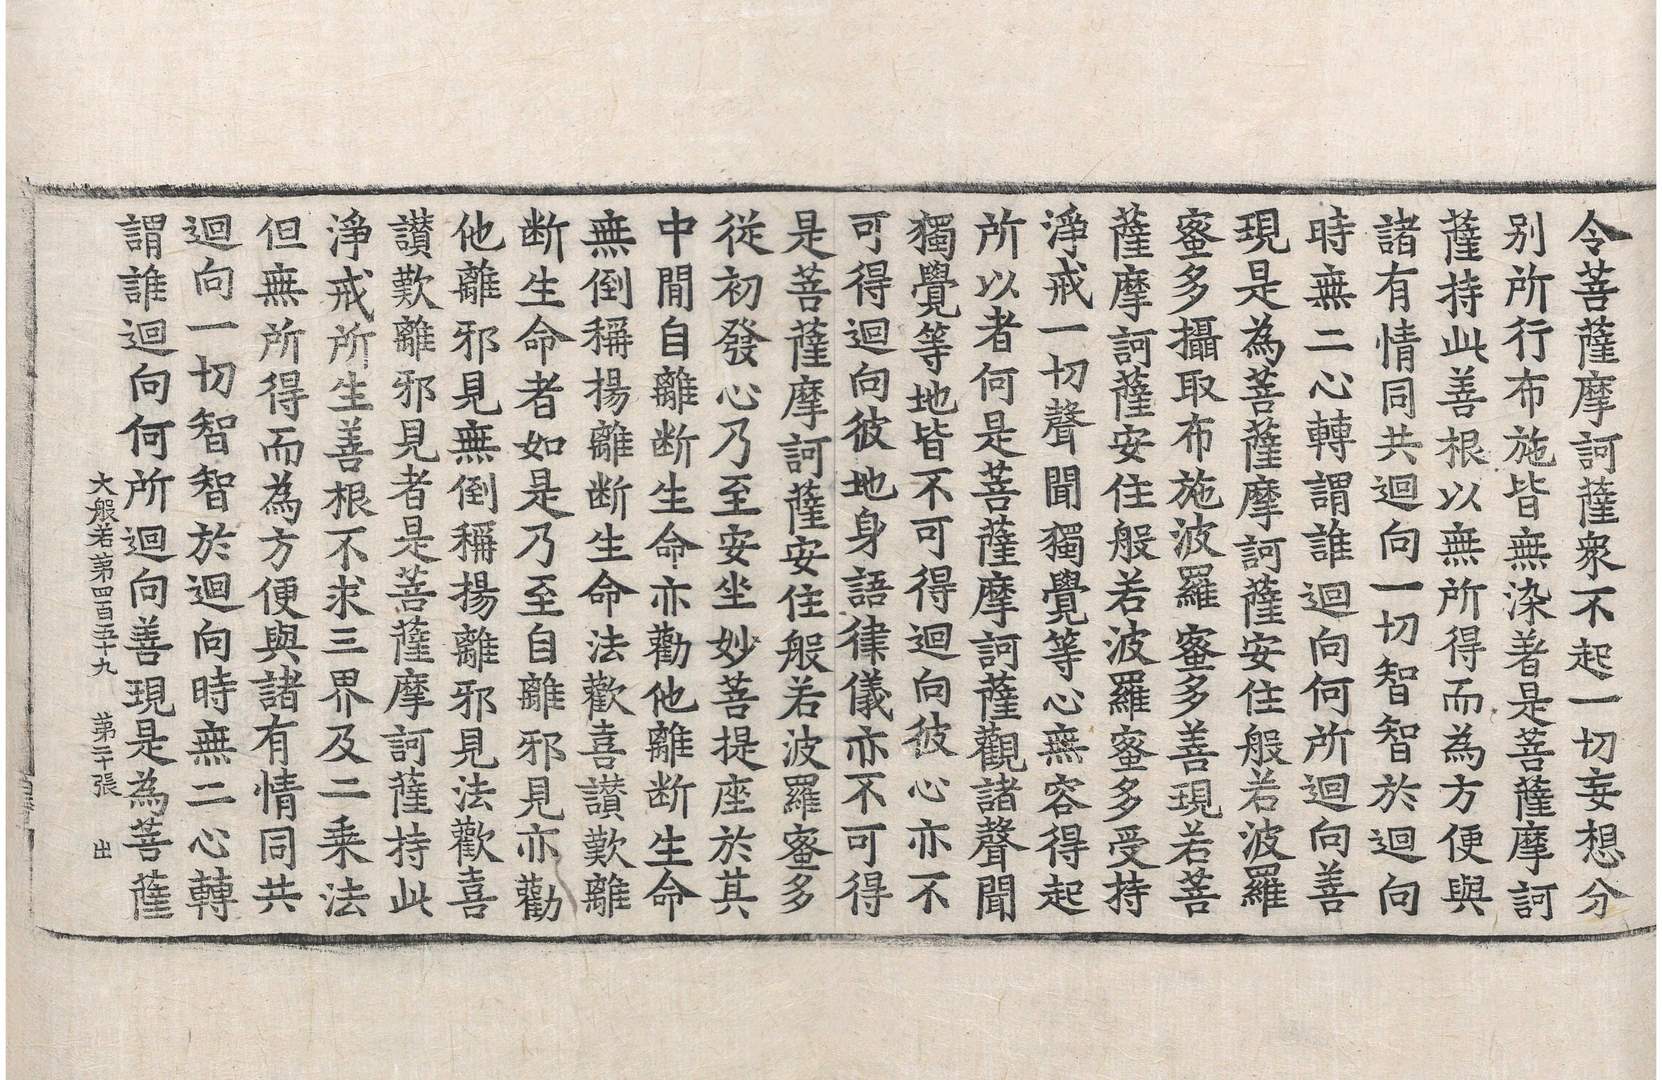 令菩薩摩訶薩衆不起一切妄想分
别所行布施皆無染著是菩薩摩訶
薩持此善根以無所得而為方便與
諸有情同共迴向一切智智於迴向
時無二心轉謂誰迴向何所迴向善
現是為菩薩摩訶薩安住般若波羅
蜜多攝取布施波羅蜜多善現若菩
薩摩訶薩安住般若波羅蜜多受持
淨戒一切聲聞獨覺等心無容得起
所以者何是菩薩摩訶薩觀諸聲聞
獨覺等地皆不可得迴向彼心亦不
可得迴向彼地身語律儀亦不可得
是菩薩摩訶薩安住般若波羅蜜多
從初發心乃至安坐妙菩提座於其
中閒自離断生命亦勸他離断生命
無倒稱揚離断生命法歡喜讃歎離
断生命者如是乃至自離邪見亦勸
他離邪見無倒稱揚離邪見法歡喜
讃歎離邪見者是菩薩摩訶薩持此
淨戒所生善根不求三界及二乗法
但無所得而為方便與諸有情同共
迴向一切智智於迴向時無二心轉
謂誰迴向何所迴向善現是為菩薩
大般若第四百五十九 第二十張 出